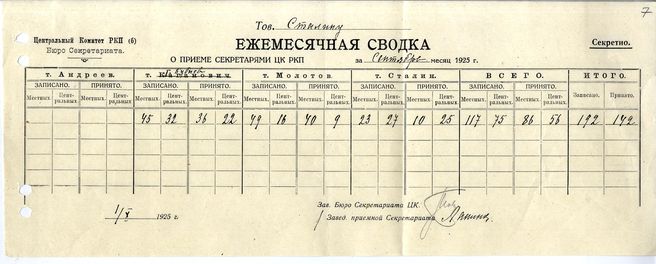 7
Тов. Сталину
Центральный Комитет РКП (б)
Бюро Секретариата.
ЕЖЕМЕСЯЧНАЯ СВОДКА
Секретно.
О ПРИЕМЕ СЕКРЕТАРЯМИ ЦК РКП за Сентябрь месяц 1925 г.
т. Андреев. т. Каганович. т. Молотов. т. Сталин. ВСЕГО. ИТОГО.
ЗАПИСАНО. ПРИНЯТО. ЗАПИСАНО. ПРИНЯТО. ЗАПИСАНО. ПРИНЯТО. ЗАПИСАНО. ПРИНЯТО. ЗАПИСАНО. ПРИНЯТО. Записано. Принято.
Местных Центральных. Местных Центральных. Местных Центральных. Местных Центральных. Местных Центральных. Местных Центральных. Местных Центральных. Местных Центральных. Местных Центральных. Местных Центральных.
45 32 36 22 49 16 40 9 23 27 10 25 117 75 86 56 192 142
Зав. Бюро Секретариата ЦК.
1/X 1925 г.
Завед. приемной Секретариата